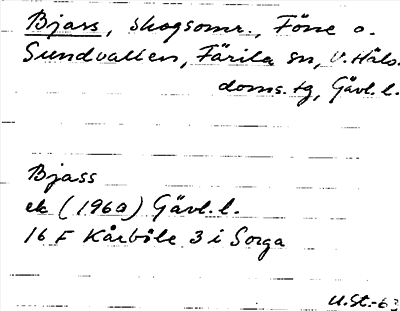 Bjass, skogsomr., Föne o.
Sundvallen, Färila sn, V. Häls.
doms. tg, Gävl. l.
Bjass
ek (1960) Gävl. l.
16 F Kårböle 3 i Sorga
U.St.-63